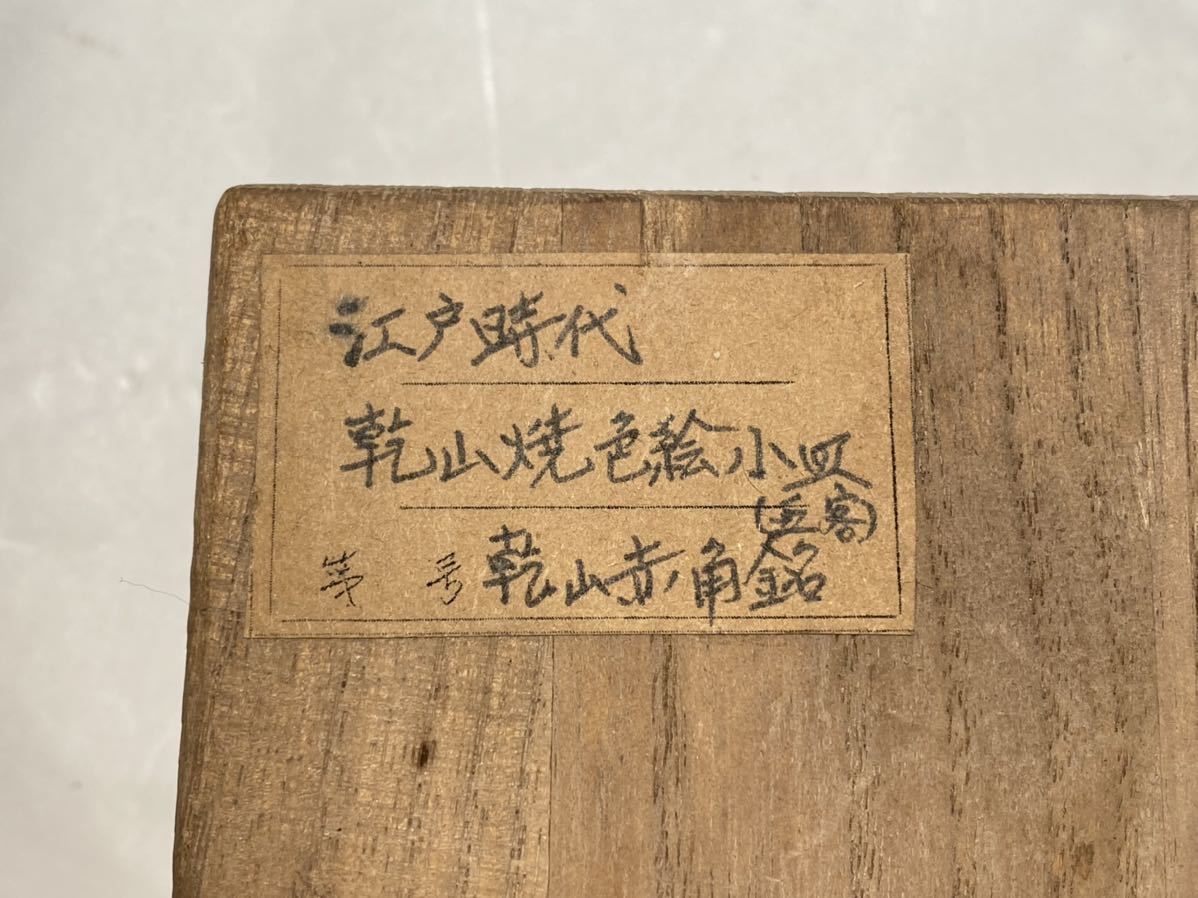 江戸時代
乾山焼色絵小皿
(五客)
第 号 乾山赤角銘